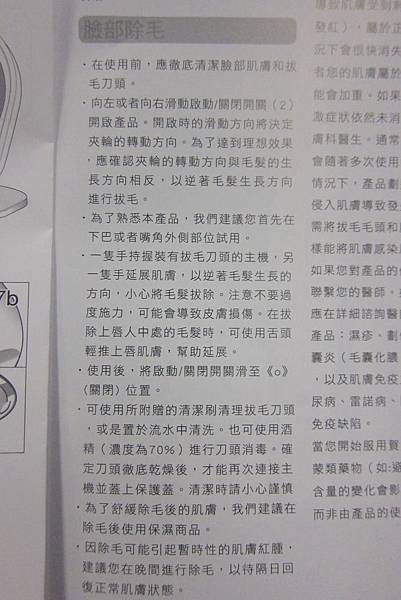 臉部除毛
·在使用前，應徹底清潔臉部肌膚和拔
毛刀頭。
·向左或者向右滑動啟動/關閉開關（2）
開啟產品。開啟時的滑動方向將決定
夾輪的轉動方向。為了達到理想效果
，應確認夾輪的轉動方向與毛髮的生
長方向相反，以逆著毛髮生長方向
進行拔毛。
·為了熟悉本產品，我們建議您首先在
下巴或者嘴角外側部位試用。
·一隻手持握裝有拔毛刀頭的主機，另
一隻手延展肌膚，以逆著毛髮生長的
方向，小心將毛髮拔除。注意不要過
度施力，可能會導致皮膚損傷。在拔
除上唇人中處的毛髮時，可使用舌頭
輕推上唇肌膚，幫助延展。
·使用後，將啟動/關閉開關滑至《o》
(關閉) 位置。
·可使用所附贈的清潔刷清理拔毛刀頭
，或是置於流水中清洗。也可使用酒
精（濃度為70%）進行刀頭消毒。確
定刀頭徹底乾燥後，才能再次連接主
機並蓋上保護蓋。清潔時請小心謹慎
·為了舒緩除毛後的肌膚，我們建議在
除毛後使用保濕商品。
·因除毛可能引起暫時性的肌膚紅腫，
建議您在晚間進行除毛，以待隔日回
復正常肌膚狀態。
7b
導致肌膚受到刺
發紅），屬於正
況下會很快消失
者您的肌膚屬於
能會加重。如果
激症狀依然未消
膚科醫生。通常
會隨著多次使用
情況下，產品劃
侵入肌膚導致發
需將拔毛毛頭和
樣能將肌膚感染
如果您對產品的
聯繫您的醫師。
應在詳細諮詢醫
產品：濕疹、劃
囊炎（毛囊化膿
，以及肌膚免疫
尿病、雷諾病、
免疫缺陷。
當您開始服用質
蒙類藥物（如:避
含量的變化會影
而非由產品的使